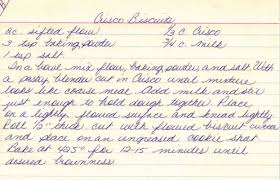 Crisco Biscuits
2 c. sifted flour 1/3 c Crisco
3 tsp baking powder 3/4 c. milk
1 tsp salt
In a bowl mix flour, baking powder and salt. With
a pastry blender cut in Crisco until mixture
looks like coarse meal. Add milk and stir
just enough to hold dough together. Place
on a lightly floured surface and knead lightly
Roll 1/2" thick. cut with floured biscuit cutter
and place on an ungreased cookie sheet
Bake at 425° for 12-15 minutes until
desired brownness